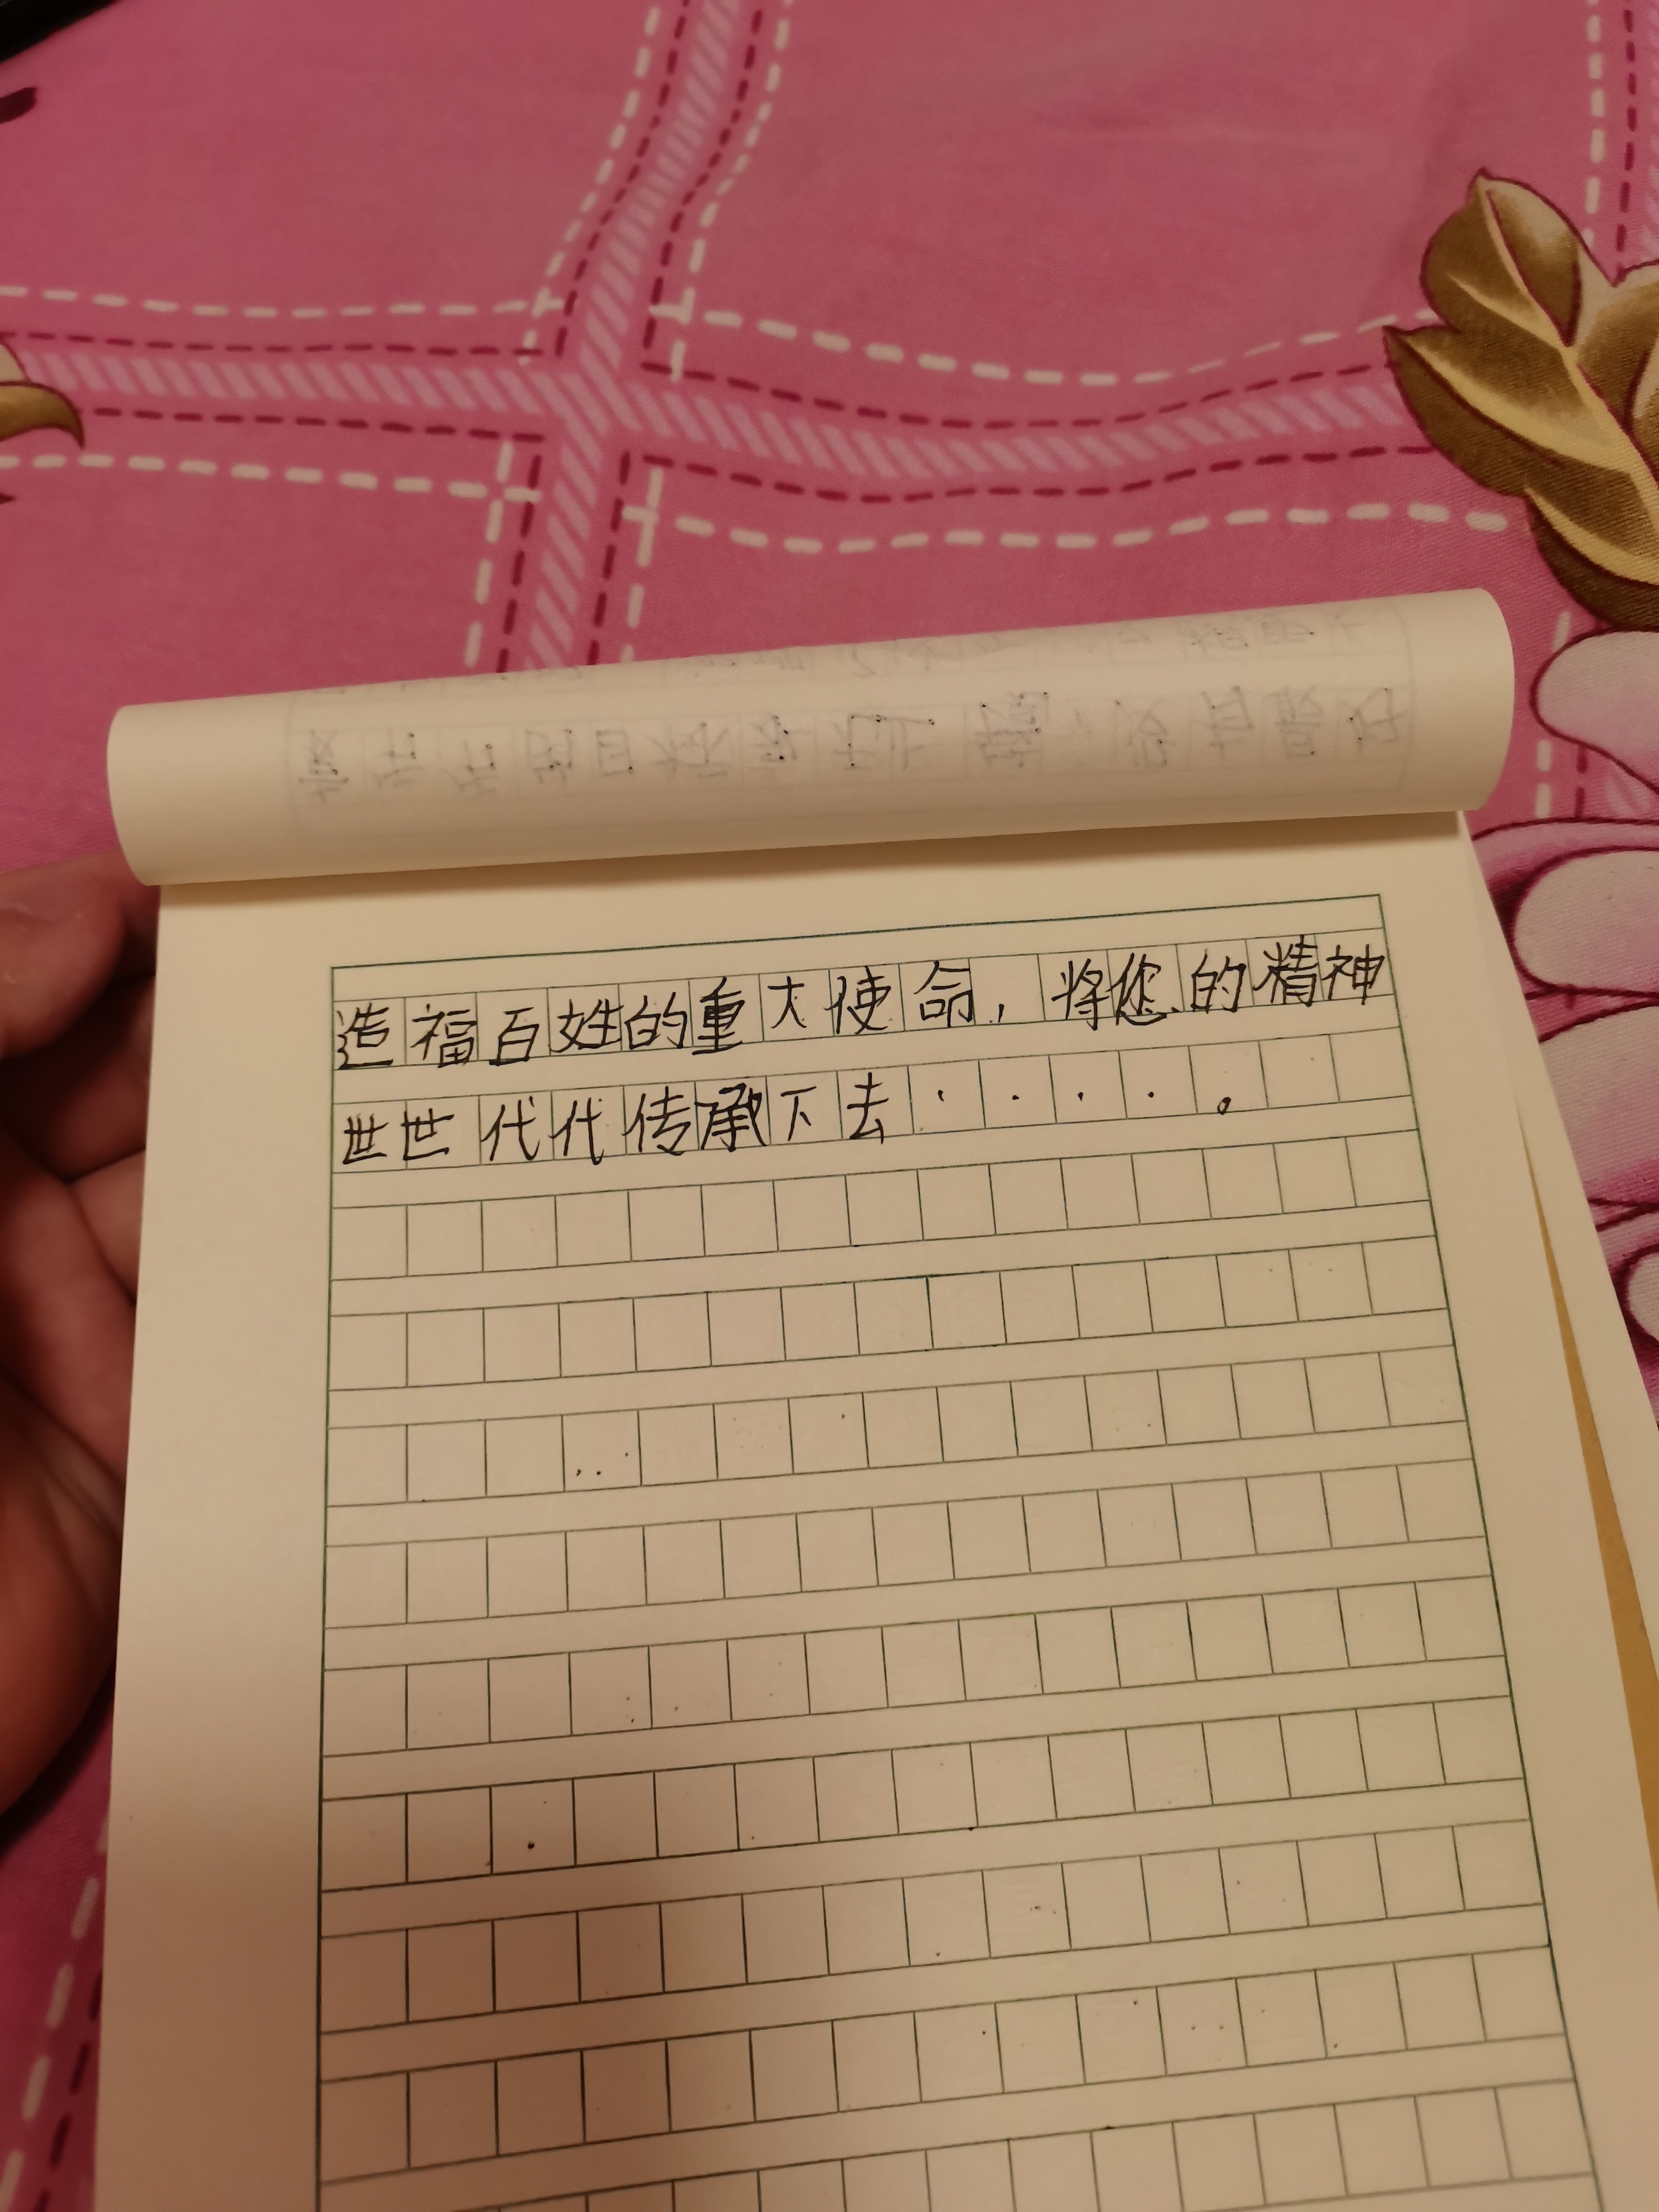 造福百姓的重大使命，将您的精神
世世代代传承下去····。